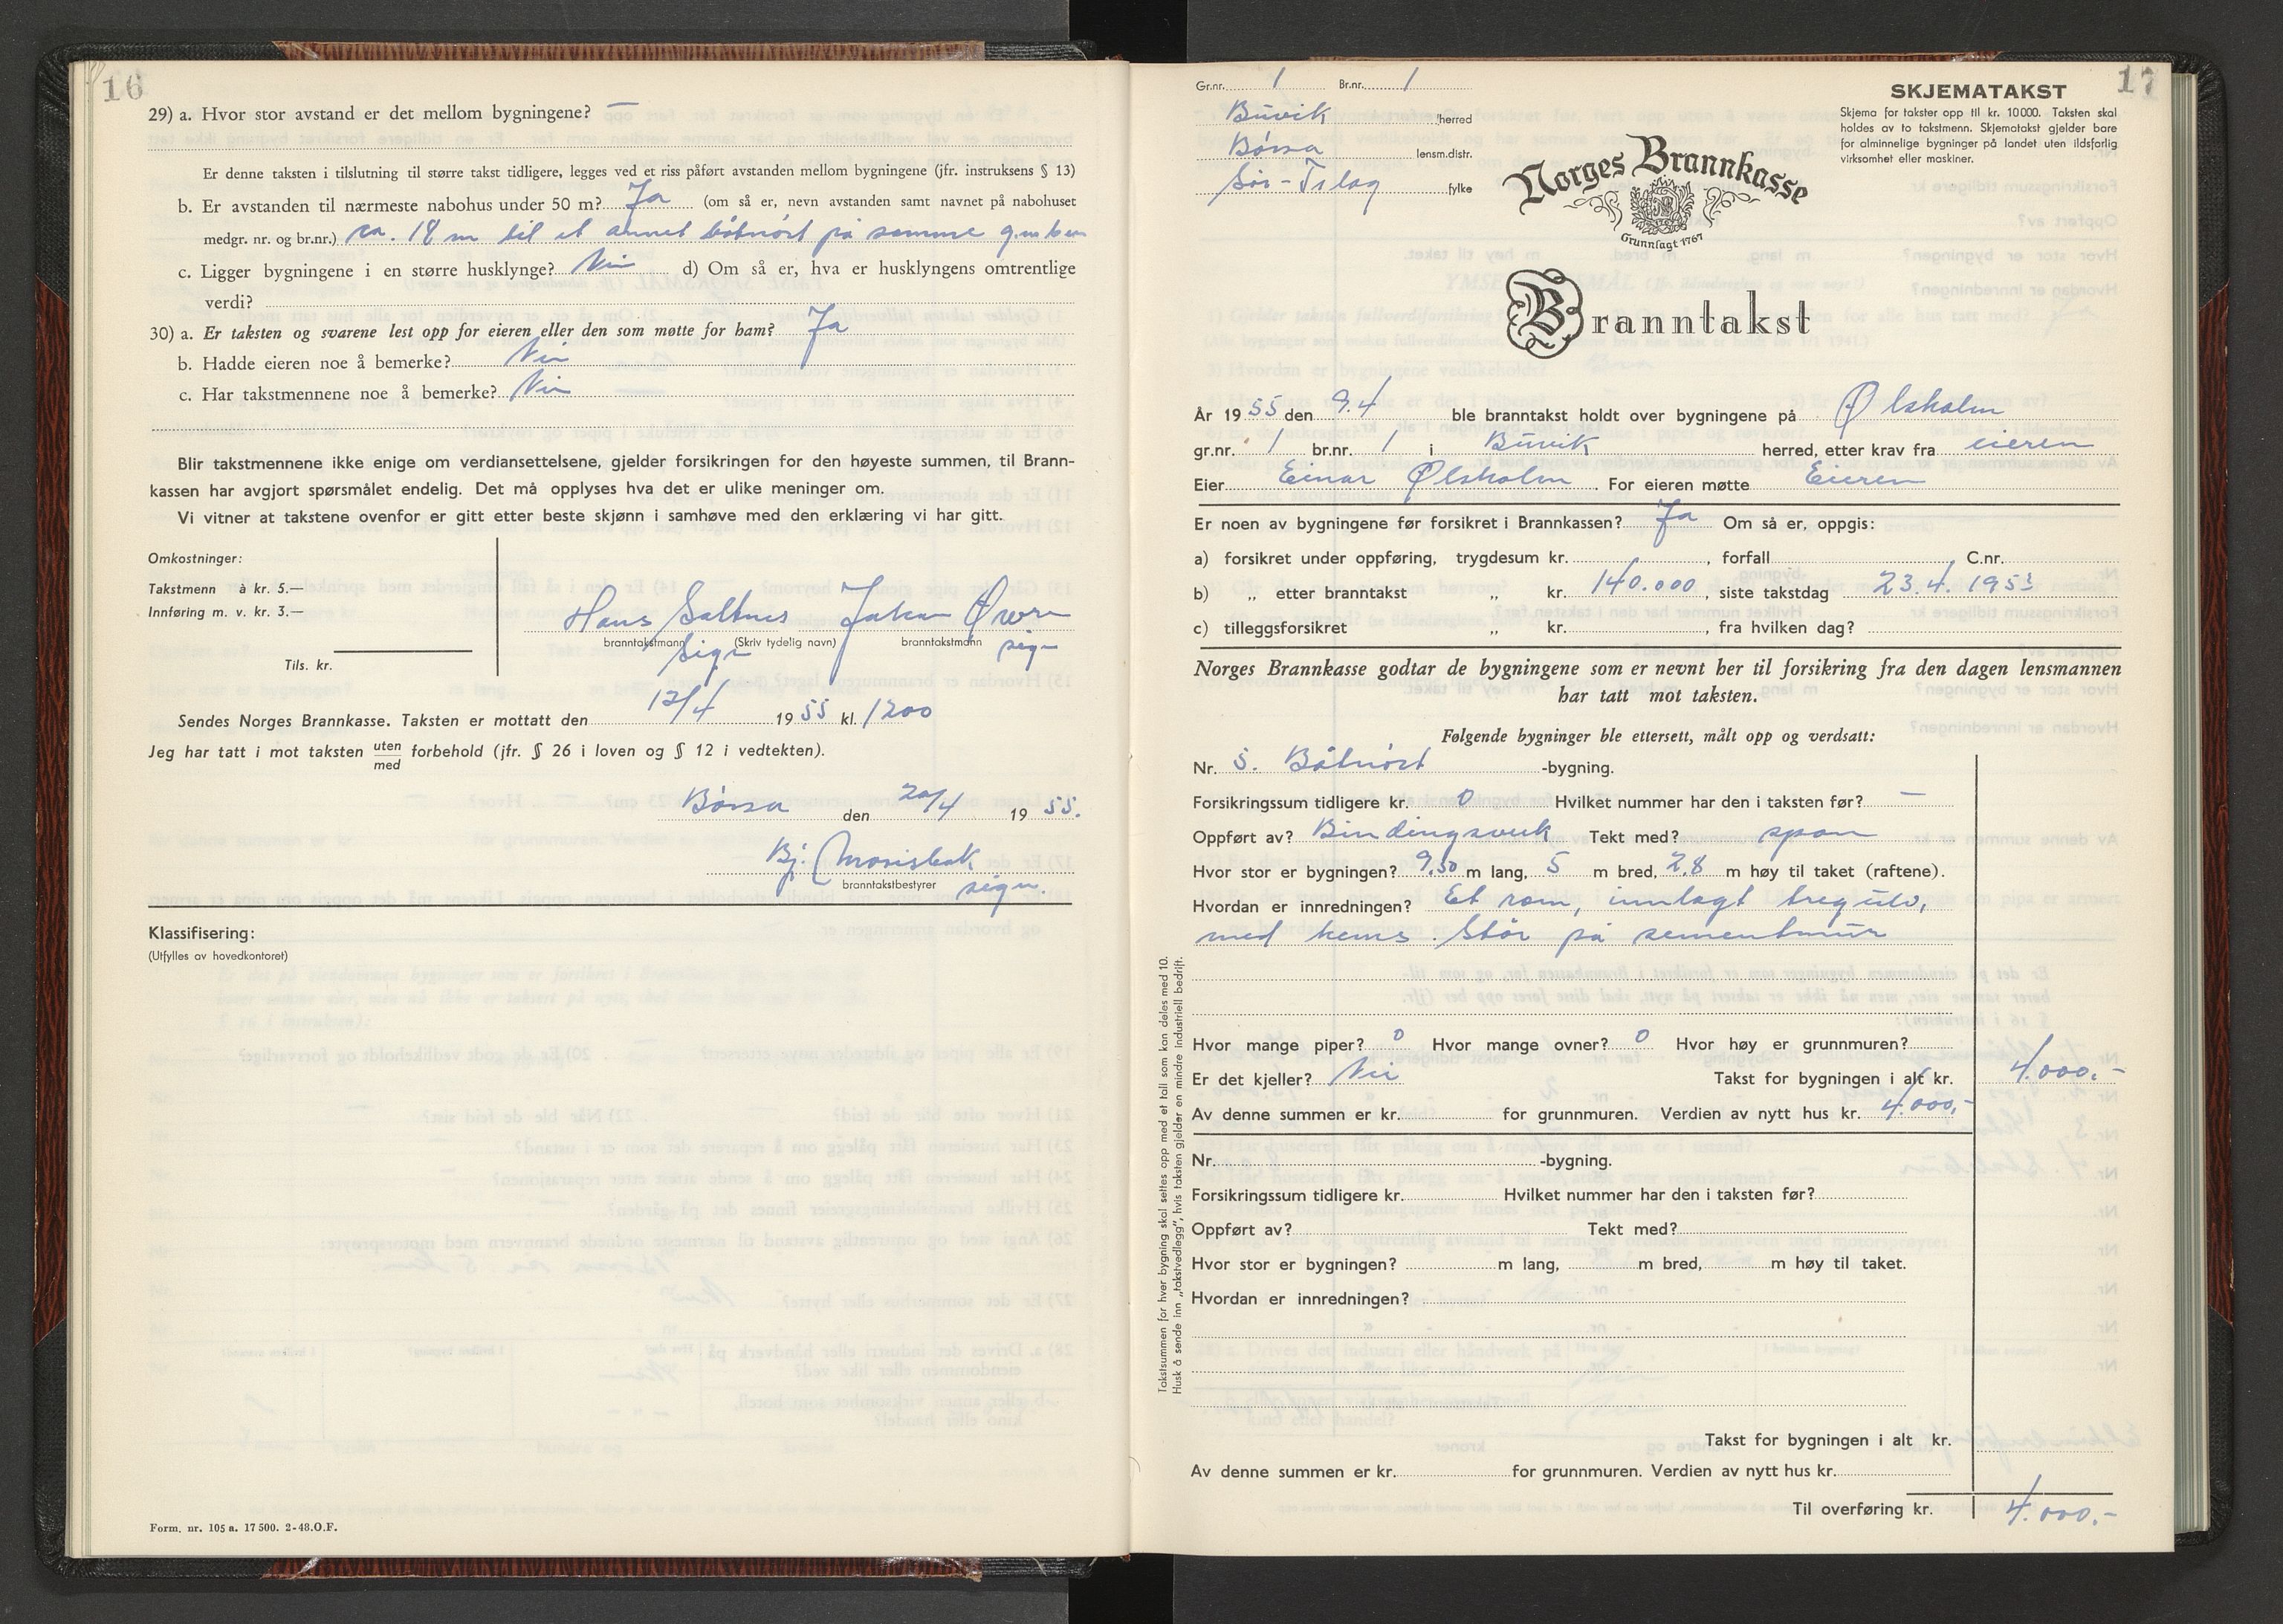 16
29) a. Hvor stor avstand er det mellom bygningene? —
Er denne taksten i tilslutning til større takst tidligere, legges ved et riss påført avstanden mellom bygningene (jfr. instruksens § 13)
b. Er avstanden til nærmeste nabohus under 50 m? Ja (om så er, nevn avstanden samt navnet på nabohuset
medgr. nr. og br.nr.) ca. 18 m til et annet båtnøst på samme
c. Ligger bygningene i en større husklynge? Nei d) Om så er, hva er husklyngens omtrentlige
verdi?
30) a. Er taksten og svarene lest opp for eieren eller den som møtte for ham? Ja
b. Hadde eieren noe å bemerke? Nei
c. Har takstmennene noe å bemerke? Nei
Blir takstmennene ikke enige om verdiansettelsene, gjelder forsikringen for den høyeste summen, til Brann-
kassen har avgjort spørsmålet endelig. Det må opplyses hva det er ulike meninger om.
Vi vitner at takstene ovenfor er gitt etter beste skjønn i samhøve med den erklæring vi har gitt.
Omkostninger:
Takstmenn à kr. 5.—
Innføring m. v. kr. 3.—
Tils. kr.
Hans Saltnes Johan Øren
branntakstmann (Skriv tydelig navn) branntakstmann
sign sign
Sendes Norges Brannkasse. Taksten er mottatt den 12/4 1955 kl. 1200
Jeg har tatt i mot taksten uten/med forbehold (jfr. § 26 i loven og § 12 i vedtekten).
Børsa den 20/4 1955.
Bj.
branntakstbestyrer sign.
Klassifisering:
(Utfylles av hovedkontoret)
Form. nr. 105 a. 17 500. 2-48. O.F.
17
Gr.nr. 1 Br.nr. 1
Buvik herred
Børsa lensm.distr.
Sør-Tr.lag fylke
SKJEMATAKST
Skjema for takster opp til kr. 10000. Taksten skal
holdes av to takstmenn. Skjematakst gjelder bare
for alminnelige bygninger på landet uten ildsfarlig
virksomhet eller maskiner.
Norges Brannkasse
Grunnlagt 1767
Branntakst
År 1955 den 9.4 ble branntakst holdt over bygningene på Ølsholm
gr.nr. 1 br.nr. 1 i Buvik herred, etter krav fra eieren
Eier Einar Ølsholm. For eieren møtte Eieren
Er noen av bygningene før forsikret i Brannkassen? Ja Om så er, oppgis:
a) forsikret under oppføring, trygdesum kr. , forfall C.nr.
b) „ etter branntakst „ kr. 140.000, siste takstdag 23.4.1953
c) tilleggsforsikret „ kr. , fra hvilken dag?
Norges Brannkasse godtar de bygningene som er nevnt her til forsikring fra den dagen lensmannen
har tatt mot taksten.
Følgende bygninger ble ettersett, målt opp og verdsatt:
Nr. 5. Båtnøst -bygning.
Forsikringssum tidligere kr. 0 Hvilket nummer har den i taksten før? —
Oppført av? Bindingsverk Tekt med? spon
Hvor stor er bygningen? 9,50 m lang, 5 m bred, 2,8 m høy til taket (raftene).
Hvordan er innredningen? Et rom, innlagt tregulv,
med hems. Står på sementmur
Hvor mange piper? 0 Hvor mange ovner? 0 Hvor høy er grunnmuren?
Er det kjeller? Nei Takst for bygningen i alt kr. 4.000.-
Av denne summen er kr. for grunnmuren. Verdien av nytt hus kr. 4.000,-
Nr. -bygning.
Forsikringssum tidligere kr. Hvilket nummer har den i taksten før?
Oppført av? Tekt med?
Hvor stor er bygningen? m lang, m bred, m høy til taket.
Hvordan er innredningen?
Takst for bygningen i alt kr.
Av denne summen er kr. for grunnmuren. Verdien av nytt hus kr.
Til overføring kr. 4.000.-
Takstsummen for hver bygning skal settes opp med et tall som kan deles med 10.
Husk å sende inn „takstvedlegg", hvis taksten gjelder en mindre industriell bedrift.